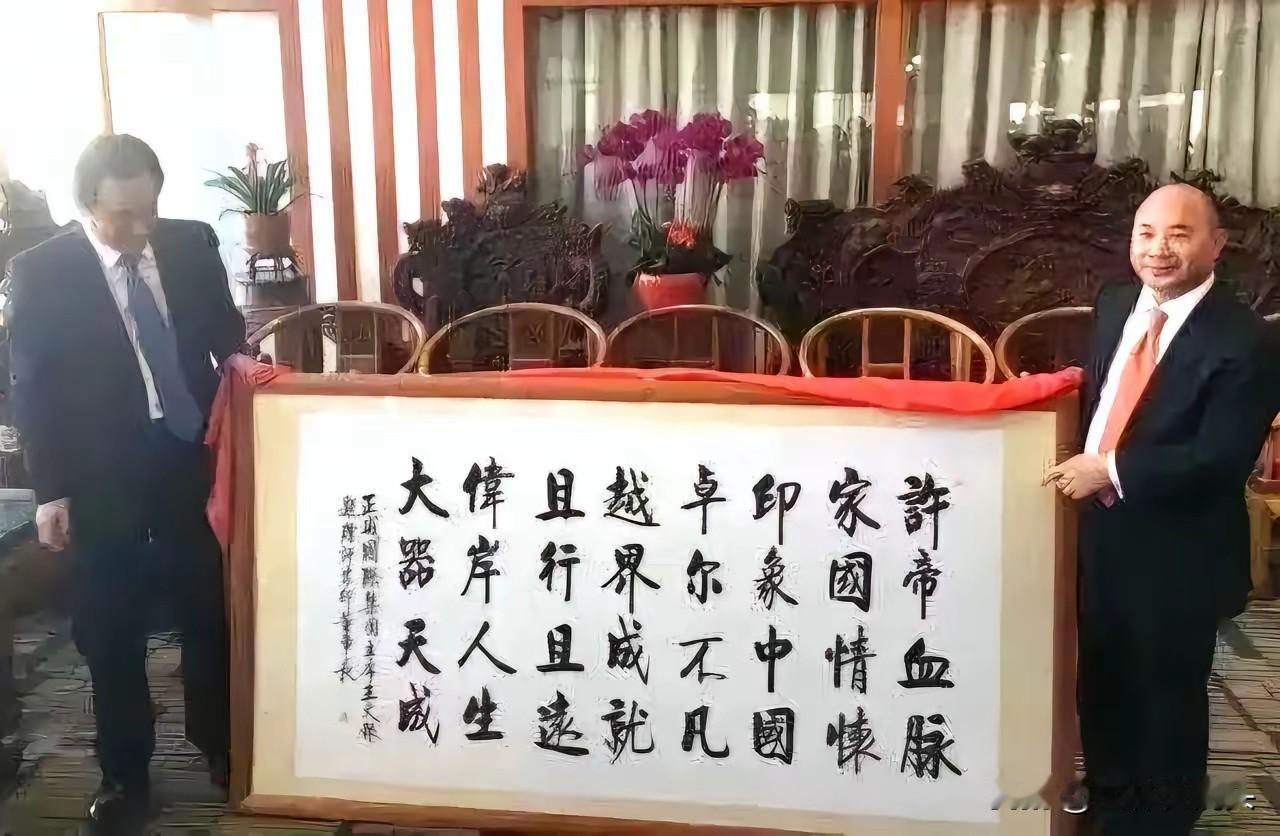 許帝血脈
家國情懷
印象中國
卓尔不凡
越界成就
且行且遠
偉岸人生
大器天成
正威國際集團主席王文銀
董事長